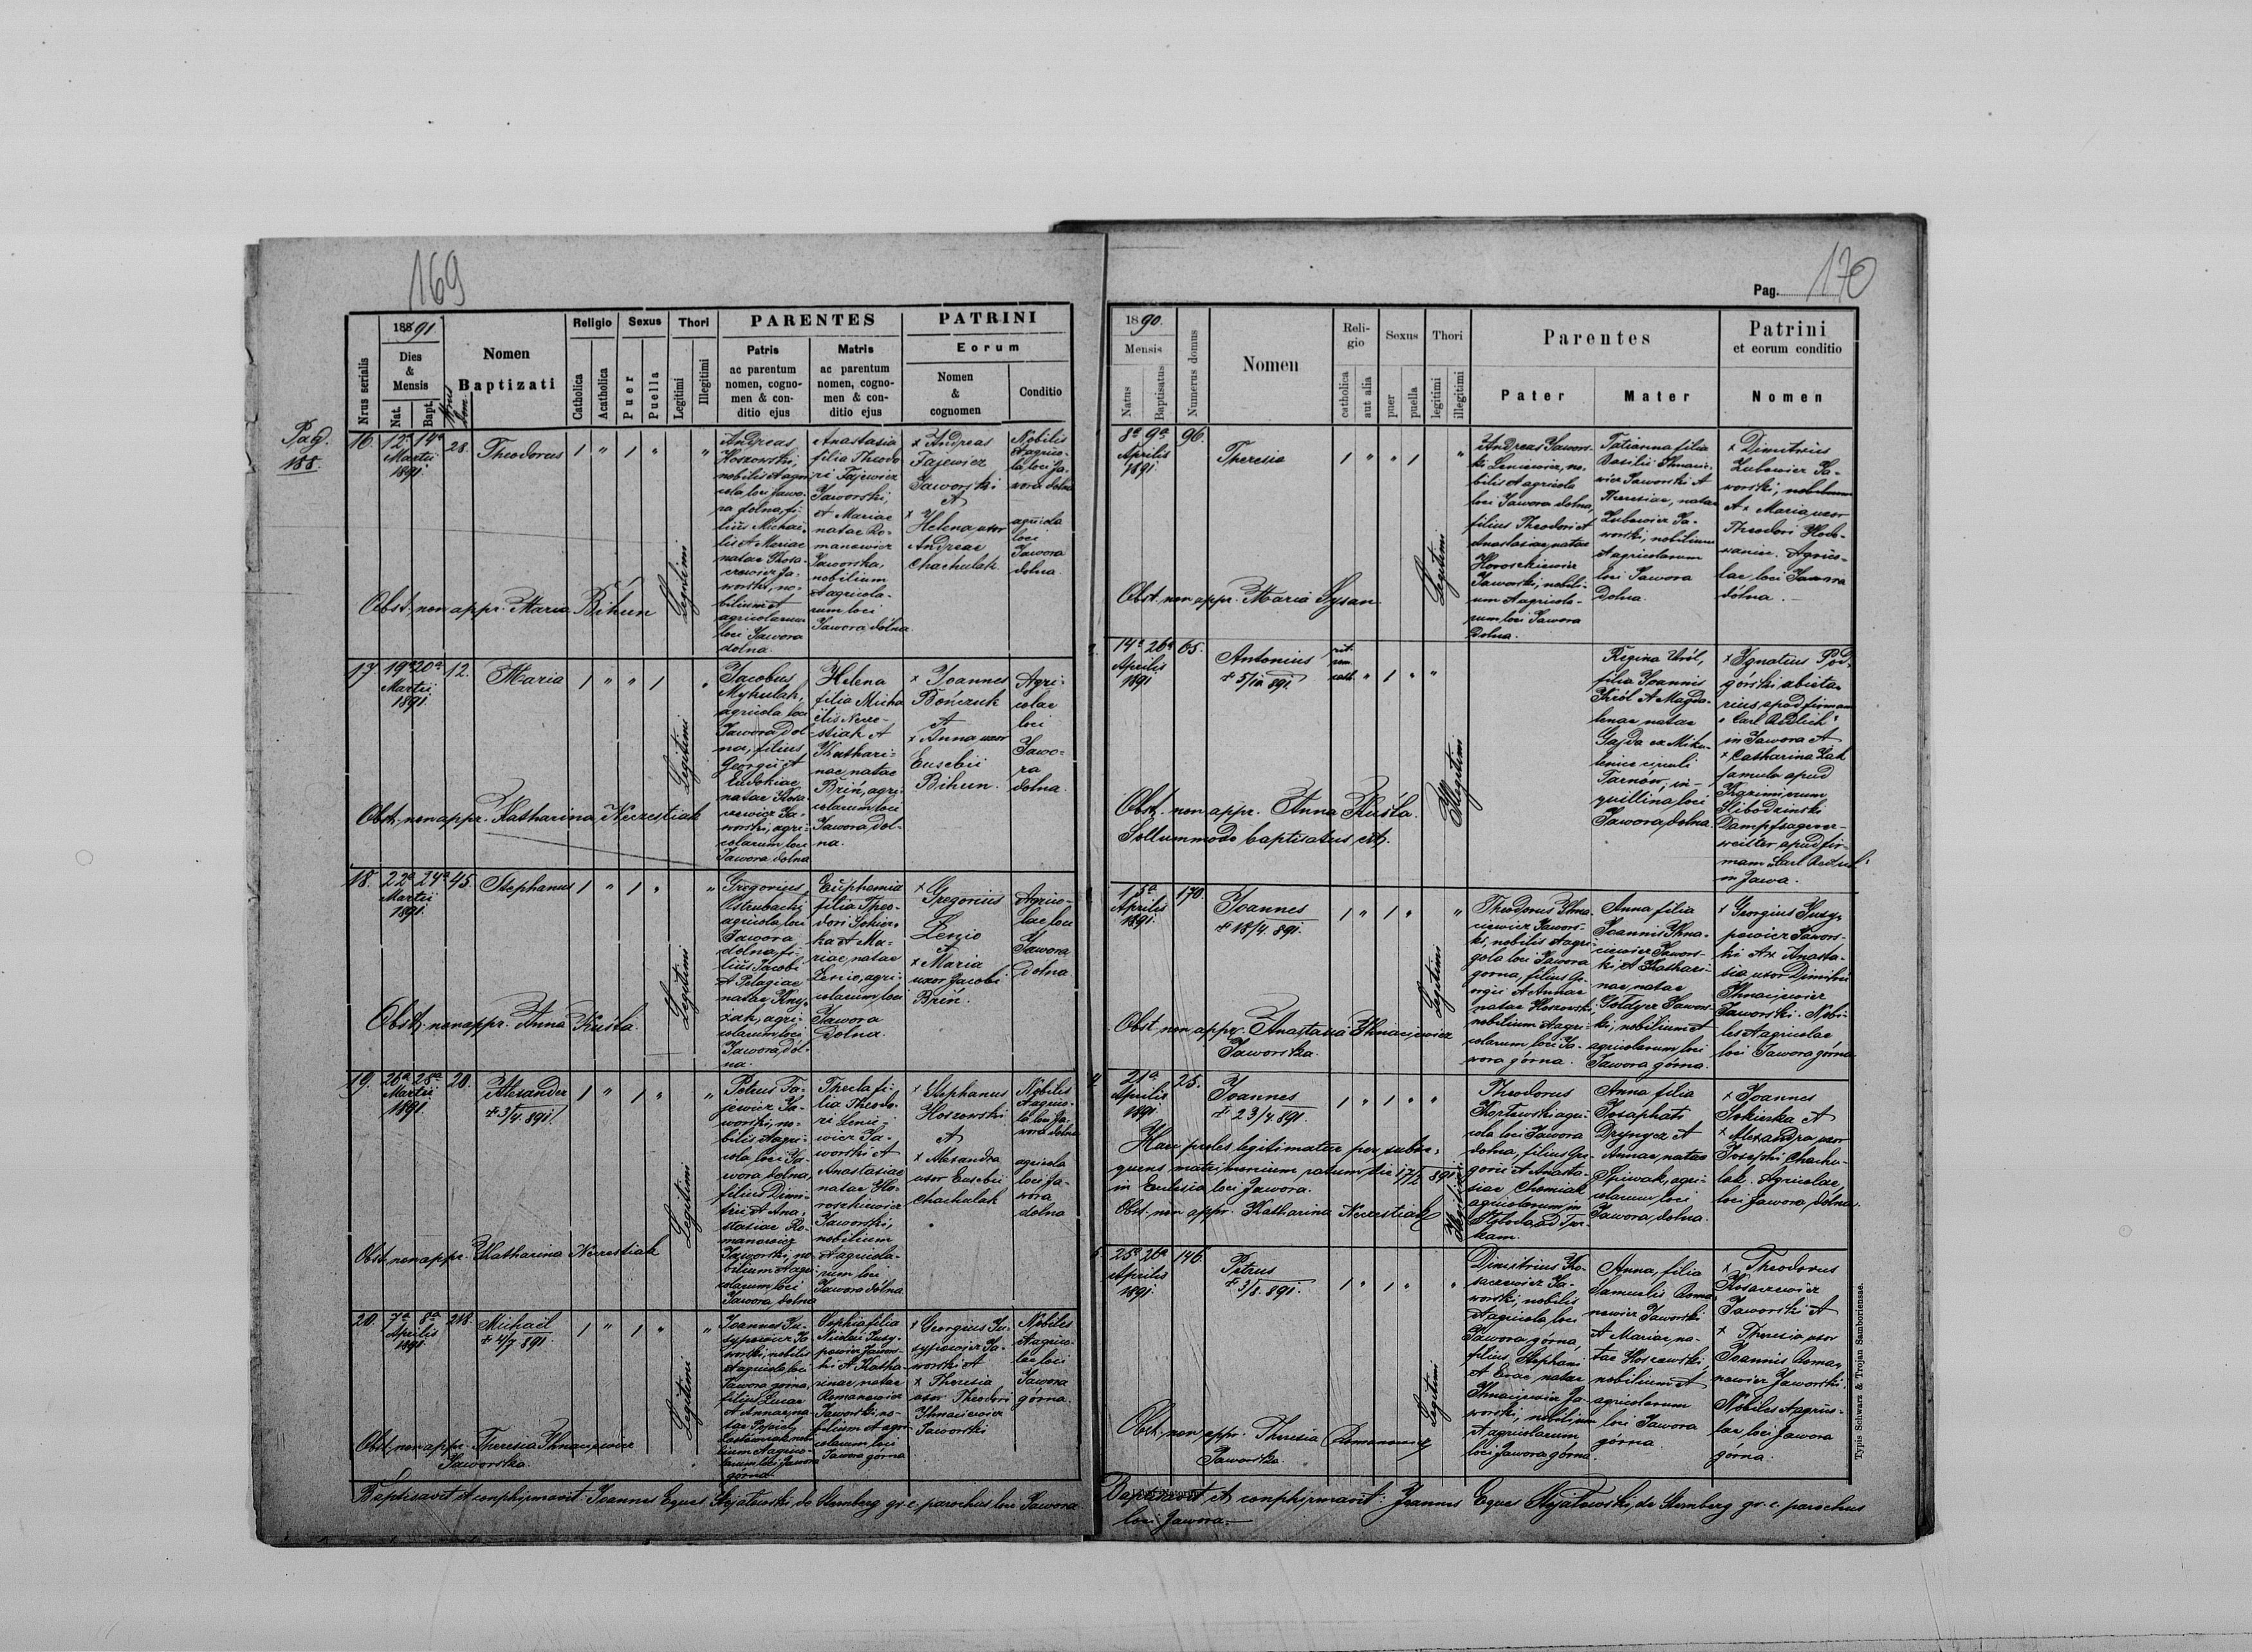 169
Pag. 170
Pag.
188.
Nrus serialis
18891
Dies
&
Mensis
Nat.
Bapt.
Nrus
dom.
Nomen
Baptizati
Religio
Catholica
Acatholica
Sexus
Puer
Puella
Thori
Legitimi
Illegitimi
PARENTES
Patris
ac parentum
nomen, cogno-
men & con-
ditio ejus
Matris
ac parentum
nomen, cogno-
men & con-
ditio ejus
PATRINI
Eorum
Nomen
&
cognomen
Conditio
16.
12ª 14ª
Martii
1891.
28.
Theodorus
1 " 1 " "
Legitimi
Andreas
Hoszowski,
nobilis et agri-
cola loci Jawo-
ra dolna, fi-
lius Michae-
lis et Mariae
natae Kosa-
czewicz Ja-
worski, no-
bilium et
agricolarum
loci Jawora
dolna.
Anastasia
filia Theodo
ri Fajewicz
Jaworski,
et Mariae
natae Ro-
manowicz
Jaworska,
nobilium
et agricola-
rum loci
Jawora dolna.
x Andreas
Fajewicz
Jaworski
et
x
Helena, uxor
Andreae
Chachulak.
Nobilis
et agrico-
la loci Ja-
wora dolna
agricola
loci
Jawora
dolna.
Obst. non appr. Maria Bihun
17.
19ª 20ª
Martii
1891
12.
Maria
1 " " 1 "
Legitimi
Jacobus
Mykulak,
agricola loci
Jawora dol
na, filius
Georgii et
Eudokiae
natae Kosa-
czewicz Ja-
worski, agri-
colarum loci
Jawora dolna
Helena
filia Micha
elis Necze-
stiak et
Kathari-
nae, natae
Brin, agri-
colarum loci
Jawora dol-
na.
x Joannes
Bończuk
et
x Anna uxor
Eusebii
Bihun.
Agri-
colae
loci
Jawo-
ra
dolna.
Obst. non appr. Katharina Neczestiak
18.
22ª 24ª
Martii
1891.
45.
Stephanus
1 " 1 " "
Legitimi
Gregorius
agricola loci
Jawora
dolna, fi-
lius Jacobi
et Pelagiae
natae
agri-
colarum loci
Jawora, dol-
na.
Euphemia
filia Theo-
dori Sokir-
ka et Ma-
riae, natae
Lenio, agri-
colarum loci
Jawora
Dolna.
x
Gregorius
Lenio
et
x Maria
uxor Jacobi
Brin.
Agrico-
lae loci
Jawora
dolna
Obst. non appr. Anna Kuśla.
19.
26ª 28ª
Martii
1891
20.
Alexander
+ 3/4. 891.
1 " 1 " "
Legitimi
Petrus Fa-
jewicz Ja-
worski, no-
bilis et agri-
cola loci Ja-
wora dolna,
filius Dimi-
trii et Ana-
stasiae Ro-
manowicz
Jaworski, no-
bilium et agri-
colarum loci
Jawora dolna
Thecla fi-
lia Theodo-
ri Lenie-
wicz Ja-
worski et
Anastasiae
natae Ho-
roszkiewicz
Jaworski,
nobilium
et agricola-
rum loci
Jawora dolna
x Stephanus
Hoszowski
et
x Alexandra
uxor Eusebii
Chachulak
Nobilis
et agrico-
la loci Ja-
wora dolna
agricola
loci Ja-
wora
dolna
Obst. non appr. Katharina Neczestiak
20.
7ª 8ª
Aprilis
1891.
248.
Michaël
+ 4/7 891.
1 " 1 " "
Legitimi
Joannes Ju-
sypowicz Ja-
worski, nobilis
et agricola loci
Jawora górna,
filius Lucae
et Annae, na-
tae
nobi-
lium et agrico-
larum, loci Jawora
górna
Sophia filia
Nicolai Jusy-
powicz Jawor-
ski et Katha-
rinae, natae
Romanowicz
Jaworski, no-
bilium et agri-
colarum loci
Jawora górna
x Georgius Ju-
sypowicz Ja-
worski et
x Theresia
uxor Theodori
Ihnaciewicz
Jaworski
Nobiles
et agrico-
lae loci
Jawora
górna.
Obst. non appr. Theresia Ihnaciewicz
Jaworska.
Baptisavit et confirmavit: Joannes Eques de Sternberg gr. c. parochus loci Jawora
1890.
Mensis
Natus
Baptisatus
Numerus domus
Nomen
Reli-
gio
catholica
aut alia
Sexus
puer
puella
Thori
legitimi
illegitimi
Parentes
Pater
Mater
Patrini
et eorum conditio
Nomen
8ª 9ª
Aprilis
1891.
96.
Theresia
1 " " 1 "
Legitimi
Andreas Jawors-
ki Leniewicz, no-
bilis et agricola
loci Jawora dolna,
filius Theodori et
Anastasiae, natae
Horoszkiewicz
Jaworski, nobili-
um et agricola-
rum loci Jawora
Dolna.
Tatianna filia
Basilii Ihnacie-
wicz Jaworski et
Theresiae, natae
Zubowicz Ja-
worski, nobilium
et agricolarum
loci Jawora
Dolna.
x Dimitrius
Zubowicz Ja-
worski,
et x Maria, uxor
Theodori Hoło-
Agrico-
lae, loci Jawora
dolna.
Obst. non appr. Maria Lysan
14ª 26ª
Aprilis
1891
65.
Antonius
+ 5/10 891.
rit.
rom.
cath. " 1 " "
Illegitimi
Regina Król,
filia Joannis
Król et Magda-
lenae natae
Gajda ex
Tarnów, in-
quillina loci
Jawora, dolna.
x Ignatius Pod-
górski abieta-
rius apud firmam
"Carl Redlich"
in Jawora et
x Catharina Żak
famula apud
Kazimirum
Dampfsagever-
walter apud fir-
mam Carl Redlich
in Jawora.
Obst. non appr. Anna Kuśla.
Sollummodo baptisatus est.
15ª
Aprilis
1891.
170.
Joannes
+ 18/4. 891.
1 " 1 " "
Legitimi
Theodorus Ihna-
ciewicz Jawors-
ki, nobilis et agri-
cola loci Jawora
gorna, filius Ge-
orgii et Annae
natae Hoszowski,
nobilium et agri-
colarum loci Ja-
wora górna.
Anna filia
Joannis Ihna-
ciewicz Jawors-
ki, et Kathari-
nae, natae
Jawors-
ki, nobilium et
agricolarum loci
Jawora górna.
x Georgius Jusy-
powicz Jawors-
ki et x Anasta-
sia uxor Dimitrii
Ihnaciewicz
Jaworski. Nobi-
les et agricolae
loci Jawora górna
Obst. non appr. Anastasia Ihnaciewicz
Jaworska.
4
21ª
Aprilis
1891.
25.
Joannes
+ 23/4. 891.
1 " 1 " "
Illegitimi
Theodorus
agri-
cola loci Jawora
dolna, filius Gre-
gorii et Anasta-
siae Chomiak
agricolarum in
Anna filia
Josaphati
Drynycz et
Annae, natae
Spiwak, agri-
colarum, loci
Jawora, dolna.
x Joannes
Sokirka et
x Alexandra, uxor
Josephi Chachu-
lak. Agricolae,
loci Jawora, dolna.
Haec proles legitimatur per subse-
quens matrimonium, ratum die 17/5 891
in Eclesia loci Jawora.
Obst. non appr. Katharina Neczestiak
5
25ª 26ª
Aprilis
1891.
146.
Petrus
+ 3/8. 891.
1 " 1 " "
Legitimi
Dimitrius Ko-
saczewicz Ja-
worski, nobilis
et agricola loci
Jawora, górna,
filius Stephani
et Evae natae
Ihnaciewicz Ja-
worski, nobilium
et agricolarum
loci Jawora górna.
Anna, filia
Samuelis Roma-
nowicz Jaworski
et Mariae, na-
tae Hoszowski,
nobilium et
agricolarum
loci Jawora
górna.
x Theodorus
Kosaczewicz
Jaworski et
x Theresia uxor
Joannis Roma-
nowicz Jaworski.
Nobiles et agrico-
lae loci Jawora
górna.
Obst. non appr. Theresia Romanowicz
Jaworska.
Baptisavit et confirmavit: Joannes Eques de Sternberg gr. c. parochus
loci Jawora.
Typis Schwarz & Trojan Samboriensae.